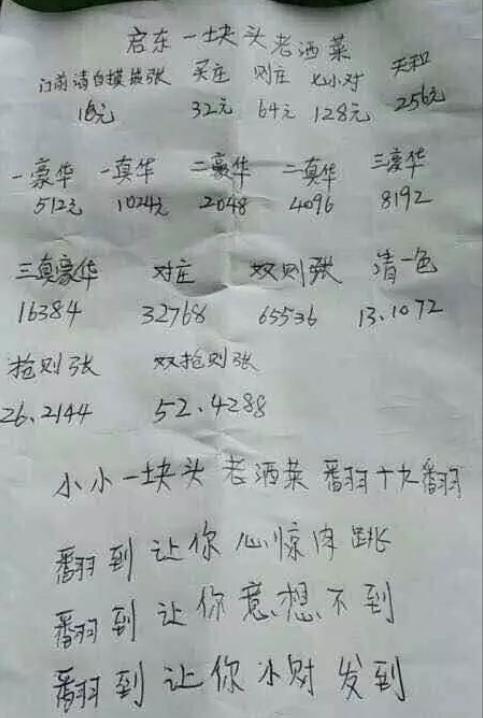 启东一块头老洒菜
门前清自摸 张 买庄 则庄 七小对 天和
16元 32元 64元 128元 256元
一豪华 一真华 二豪华 二真华 三豪华
512元 1024元 2048 4096 8192
三真豪华 对庄 双则张 清一色
16384 32768 65536 13.1072
抢则张 双抢则张
26.2144 52.4288
小小一块头 老洒菜 翻十九翻
翻到让你心惊肉跳
翻到让你意想不到
翻到让你小财发到